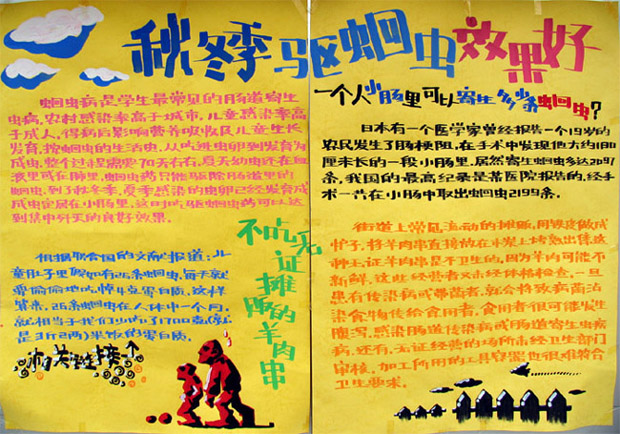 秋冬季驱蛔虫效果好
蛔虫病是学生最常见的肠道寄生
虫病,农村感染率高于城市,儿童感染率高
于成人,得病后影响营养吸收及儿童生长
发育,按蛔虫的生活史,从吃进虫卵到发育为
成虫,整个过程需要70天左右,夏天幼虫还在血
液里或在肺里,蛔虫药只能驱除肠道里的
蛔虫,到了秋冬季,夏季感染的虫卵已经发育成
成虫定居在小肠里,这时吃驱蛔虫药可以达
到集中歼灭的良好效果。
根据联合国的文献报道:儿
童肚子里假如有26条蛔虫,每天就
要偷偷地吃掉4克蛋白质,这样
算来,26条蛔虫在人体中一个月,
就相当于我们少吃了1700
是3斤2两米饭的蛋白质。
不吃无
证摊
贩的
羊肉
串
一个人小肠里可以寄生多少条蛔虫?
日本有一个医学家曾经报告一个19岁的
农民发生了肠梗阻,在手术中发现他大约180
厘米长的一段小肠里,居然寄生蛔虫多达2097
条,我国的最高纪录是某医院报告的,经手
术一共在小肠中取出蛔虫2199条。
街道上常见流动的摊贩,用铁皮做成
炉子,将羊肉串直接放在小炭上烤熟出售,这
种无证羊肉串是不卫生的,因为羊肉可能不
新鲜,这些经营者又未经体格检查,一旦
患有传染病或带菌者,就会将致病菌沾
染食物传给食用者,食用者很可能发生
腹泻,感染肠道传染病或肠道寄生虫病
病,还有,无证经营的场所未经卫生部门
审核,加工所用的工具容器也很难符合
卫生要求。